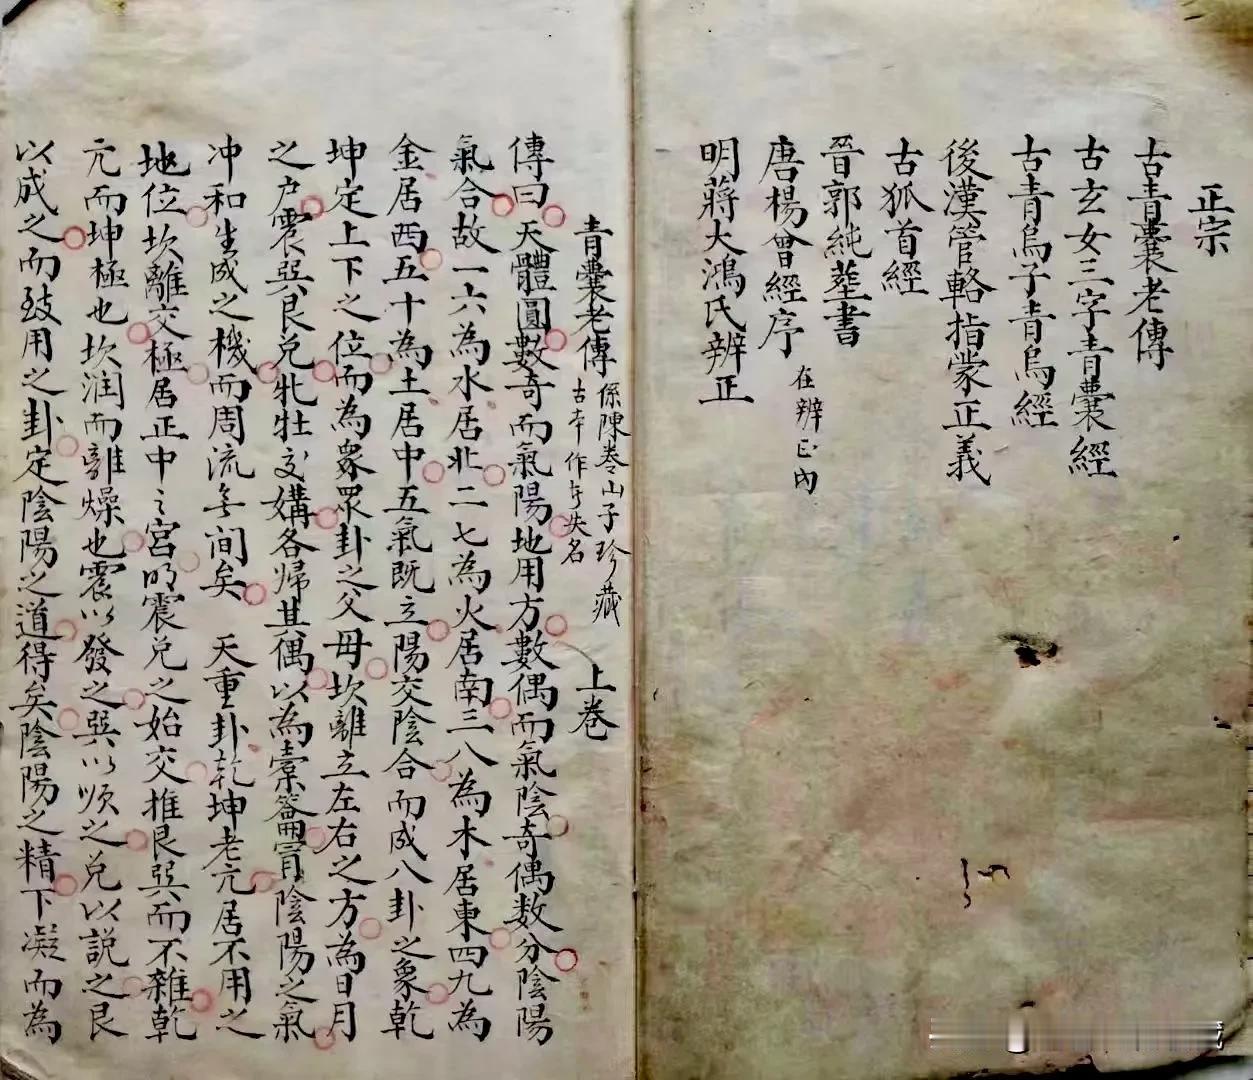 正宗
古青囊老傳
古玄女三字青囊經
古青烏子青烏經
後漢管輅指蒙正義
古狐首經
晉郭純塟書
唐楊曾經序 在辨正內
明蔣大鴻氏辨正
青囊老傳 係陳巻山子珍藏 古本作者失名 上巻
傳曰天體圓數奇而氣陽地用方數偶而氣陰奇偶数分陰陽
氣合故一六為水居北二七為火居南三八為木居東四九為
金居西五十為土居中五氣既立陽交陰合而成八卦之象乾
坤定上下之位而為衆眾卦之父母坎離立左右之方為日月
之户震巽艮兑牝牡交媾各歸其偶以為橐籥冐陰陽之氣
冲和生成之機而周流無间矣 天重卦乾坤老亢居不用之
地位坎離交極居正中之宮明震兑之始交推艮巽而不雜乾
亢而坤極也坎润而離燥也震以發之巽以順之兑以説之艮
以成之而致用之卦定陰陽之道得矣陰陽之精下凝而為